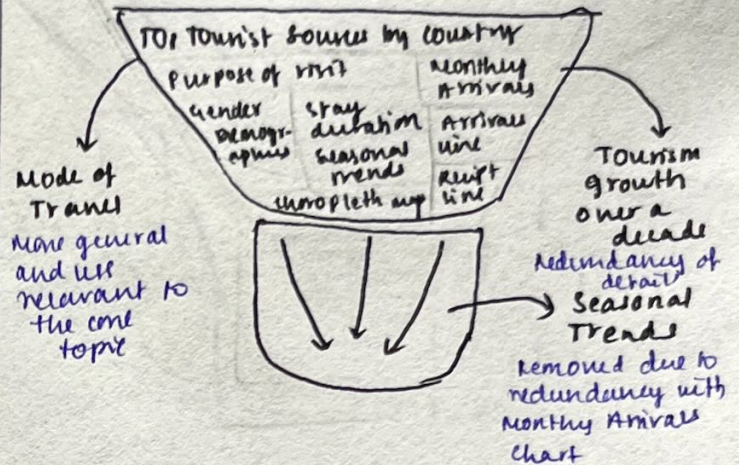 Top Tourist Sources by Country
Purpose of visit
Monthly
Arrivals
Gender
Demogr-
aphics
Stay
duration
Seasonal
trends
Arrivals
line
Receipt
line
Choropleth map
Mode of
Travel
More general
and less
relevant to
the core
topic
Tourism
growth
over a
decade
Redundancy of
detail
Seasonal
Trends
Removed due to
redundancy with
Monthy Arrivals
Chart